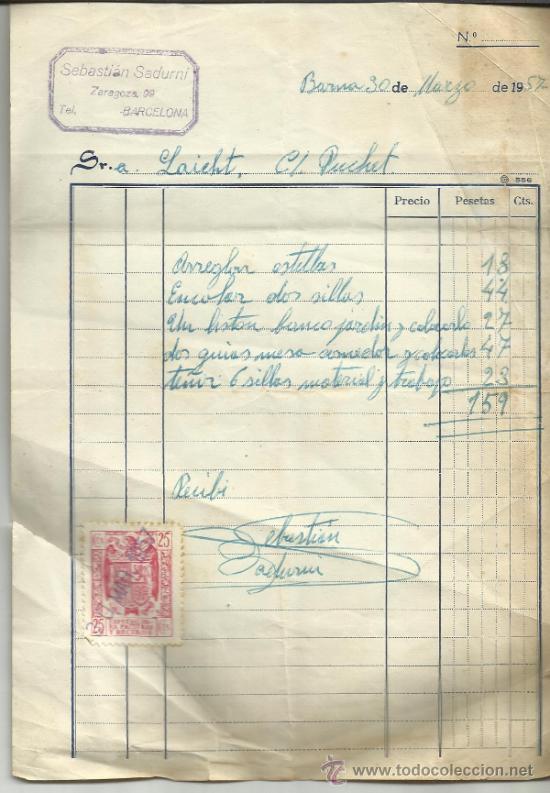 N.º
Sebastián Sadurní
Zaragoza, 99
Tel. BARCELONA
Barna 30 de Marzo de 1957
Sr.a. Laicht, C/. Puchet.
556
Precio Pesetas Cts.
Arreglar astillas 18
Encolar dos sillas 44
Un liston banco jardin y colocarlo 27
dos guias mesa comedor y colocarlas 47
teñir 6 sillas material y trabajo 23
159
Recibi
Sebastián
Sadurni
25 25
25
ESPECIAL
FACTURAS
Y RECIBOS
todocoleccion
www.todocoleccion.net